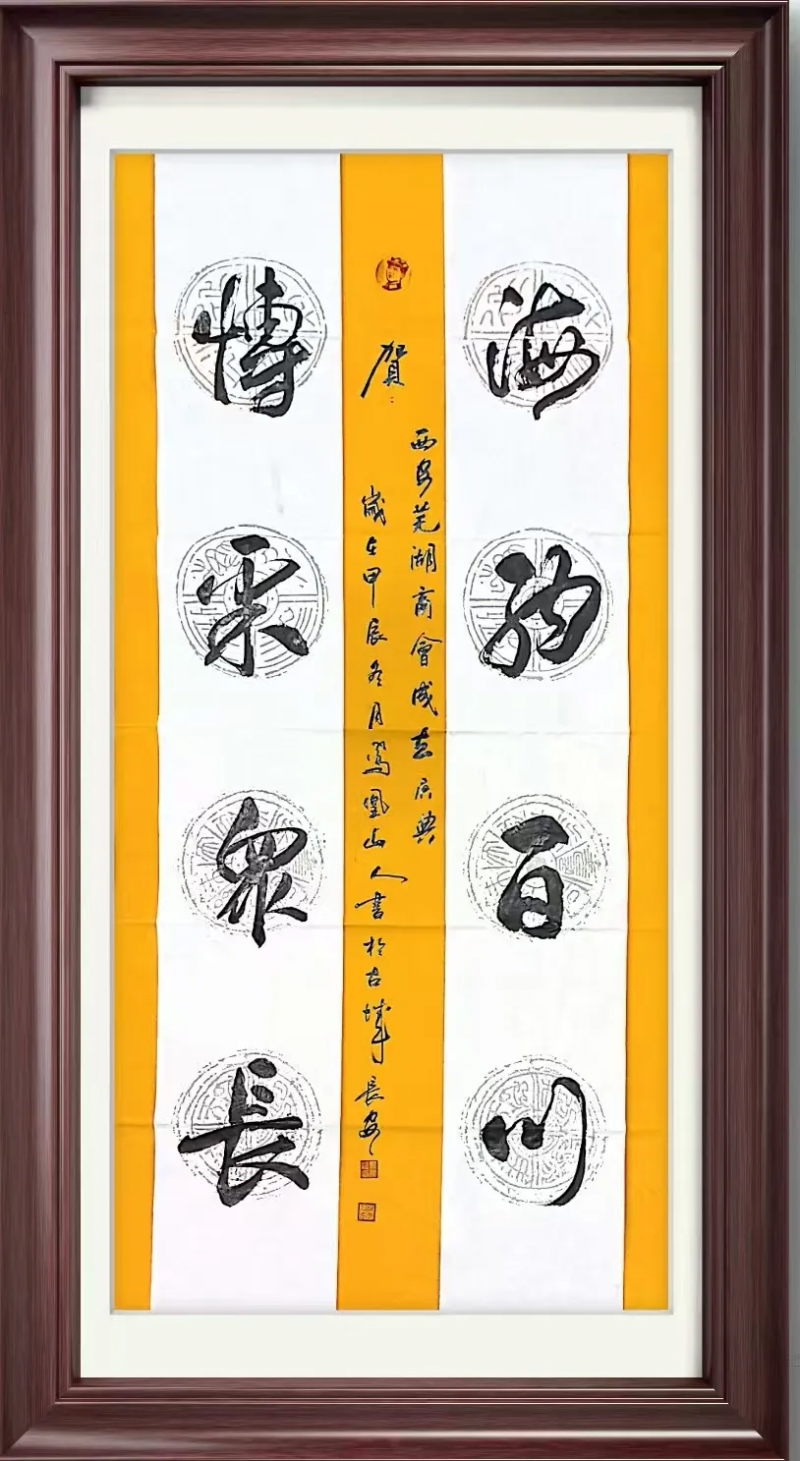 海納百川
賀:
西安芜湖商會成立庆典
歲在甲辰冬月鳳凰山人書於古城長安
博采眾長